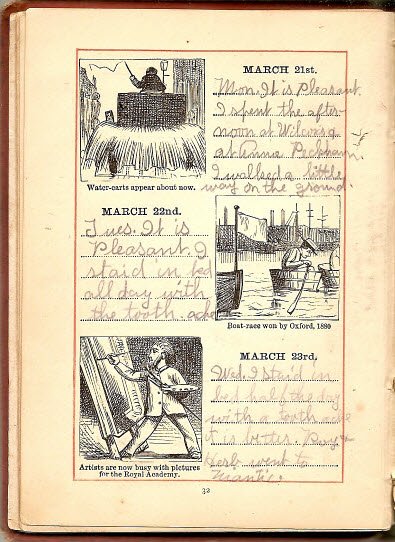 MARCH 21st.
Mon. It is Pleasant.
I spent the after-
noon at Wilcoxs
at Anna Peckham.
I walked a little
way on the ground.
Water-carts appear about now.
MARCH 22nd.
Tues. It is
Pleasant. I
staid in bed
all day with
the tooth ache
Boat-race won by Oxford, 1880
MARCH 23rd.
Wed. I staid in
bed half the day
with a tooth ache
it is better. Ray +
Herb went to
Niantic.
Artists are now busy with pictures
for the Royal Academy.
32